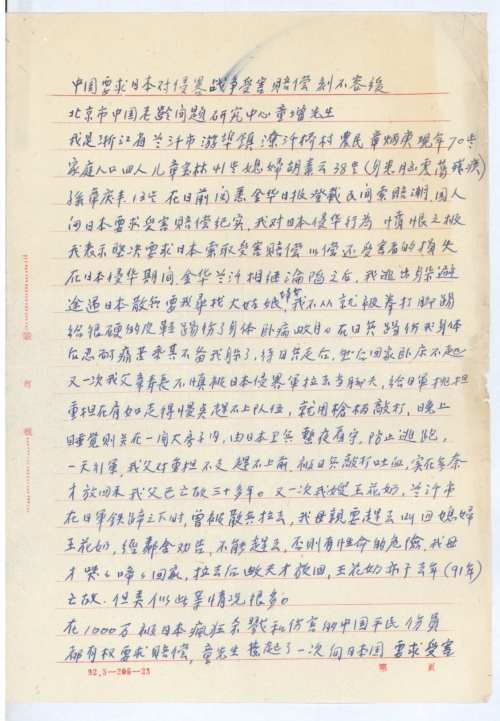 中国要求日本对侵畧战争受害赔偿刻不容缓
北京市中国老龄问题研究中心童增先生
我是浙江省兰汘市游埠镇潦汘桥村农民章炳庚现年70岁
家庭人口四人儿章宝林41岁媳妇胡素云38岁
孙章庆丰13岁在日前闻悉金华日报登载民间索赔潮,国人
向日本要求受害赔偿纪实,我对日本侵华行为愤恨之极
我表示坚决要求日本索取受害赔偿以偿还受害者的损失
在日本侵华期间,金华兰汘相继沦陷之后,我逃出躲避
途遇日本散兵要我寻找大姑娘,我不从就被拳打脚踢
给很硬的皮鞋踢伤了身体卧病数月。在日兵踢伤我身体
后忍耐痛苦 待日兵走后,回家卧床不起
又一次我父章 不慎被日本侵畧军拉去当聊夫,给日军挑担
重担在肩如走得慢点赶不上队伍,就用枪柄敲打,日晚上
睡觉则关在一间大房子内,由日本卫兵整夜看守,防止逃跑,
一天行军,我父对重担不支赶不上前,被日兵敲打吐血,实在多奈
才放回来我父已亡故三十多年。又一次我嫂王花奶,兰汘市
在日军铁蹄之下时,曾被散兵拉去,我母亲要赶去叫回媳妇
王花奶,经邻舍劝告,不能赶去,否则有性命的危险,我母
才哭哭啼啼回家,拉去后数天才放回,王花奶亦于去年(91年)
亡故.但类似此等情况很多。
在1000万被日本疯狂杀戮和伤害的中国平民伤员
都有权要求赔偿,童先生 起了一次向日本国要求受害
装订线
92.3—205—23
第 页